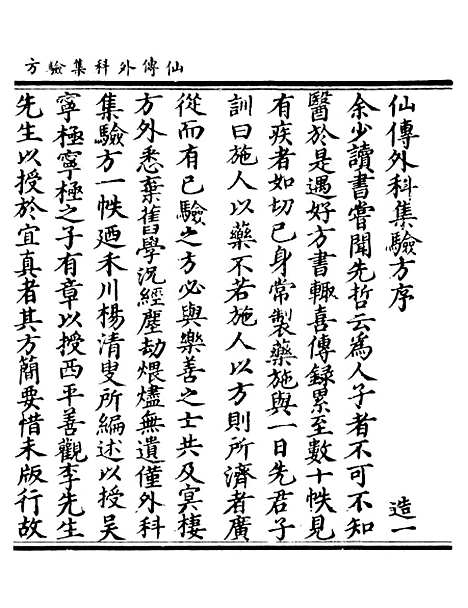 仙傳外科集驗方
仙傳外科集驗方序　造一
余少讀書嘗聞先哲云為人子者不可不知
醫於是遇好方書輙喜傳錄累至數十帙見
有疾者如切已身常製藥施與一日先君子
訓曰施人以藥不若施人以方則所濟者廣
從而有已驗之方必與樂善之士共及冥棲
方外悉棄舊學況經塵劫煨燼無遺僅外科
集驗方一帙廼禾川楊清叟所編述以授吳
寧極寧極之子有章以授西平善觀李先生
先生以授於宜真者其方簡要惜未版行故